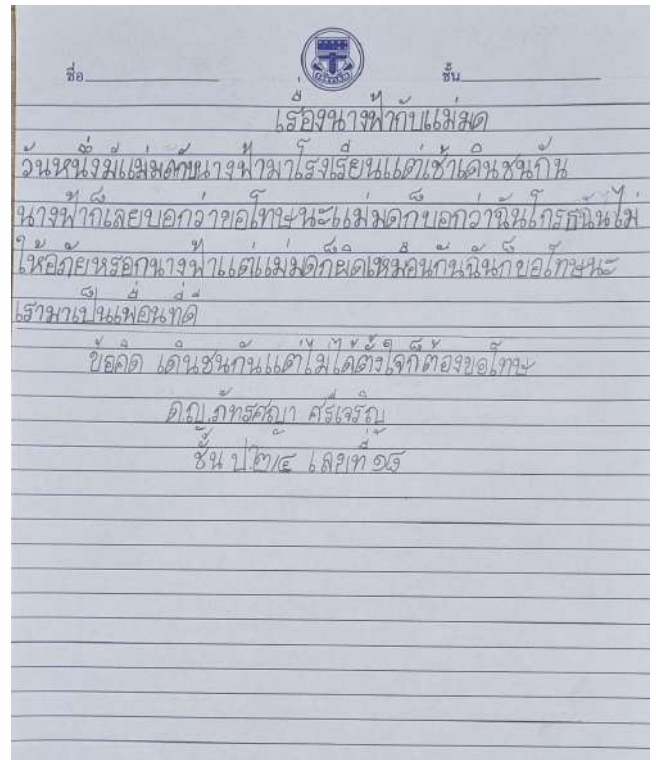 ชื่อ ชั้น
เรื่องนางฟ้ากับแม่มด
วันหนึ่งมีแม่มดกับนางฟ้ามาโรงเรียนแต่เช้าเดินชนกัน
นางฟ้าก็เลยบอกว่าขอโทษนะแม่มดก็บอกว่าฉันโกรธฉันไม่
ให้อภัยหรอกนางฟ้าแต่แม่มดก็ผิดเหมือนกันฉันก็ขอโทษนะ
เรามาเป็นเพื่อนที่ดี
ข้อคิด เดินชนกันแต่ไม่ได้ตั้งใจก็ต้องขอโทษ
ด.ญ.ภัทรศญา ศรีเจริญ
ชั้น ป๒/๔ เลขที่ ๑๘